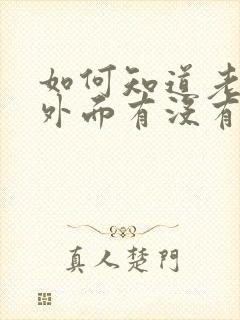 如何知道老
外面有没有
真人楚門